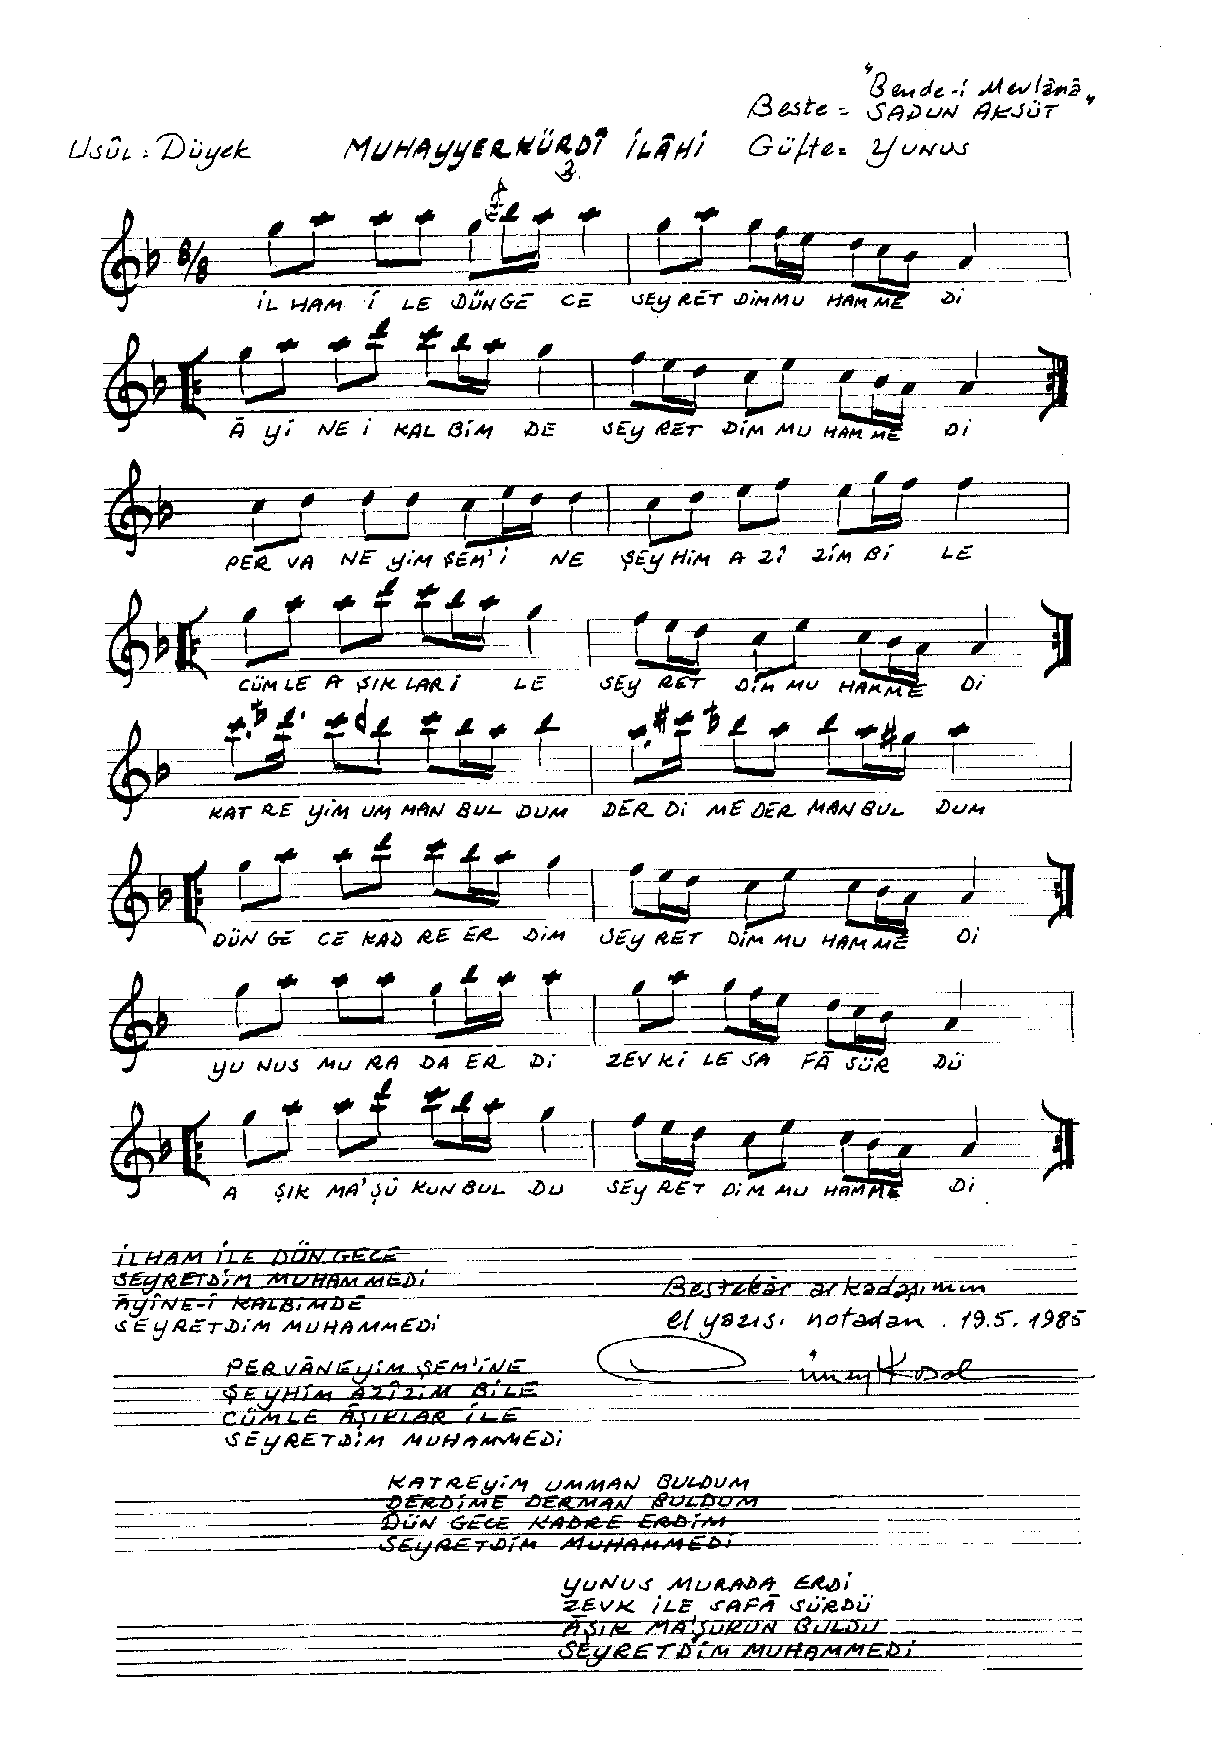 "Bende-i Mevlânâ"
Beste = SADUN AKSÜT
Usûl : Düyek MUHAYYERKÜRDÎ İLÂHİ Güfte = YUNUS
2.
8/8
İL HAM İ LE DÜN GE CE SEY RET DİM MU HAM ME Dİ
Â Yİ NE İ KAL BİM DE SEY RET DİM MU HAM ME Dİ
PER VA NE YİM ŞEM' İ NE ŞEY HİM A Zİ ZİM Bİ LE
CÜM LE A ŞIK LAR İ LE SEY RET DİM MU HAM ME Dİ
KAT RE YİM UM MAN BUL DUM DER Dİ ME DER MAN BUL DUM
DÜN GE CE KAD RE ER DİM SEY RET DİM MU HAM ME Dİ
YU NUS MU RA DA ER Dİ ZEV Kİ LE SA FÂ SÜR DÜ
A ŞIK MA' ŞÛ KUN BUL DU SEY RET DİM MU HAM ME Dİ
İLHAM İLE DÜN GECE
SEYRETDİM MUHAMMEDİ
ÂYÎNE-İ KALBİMDE
SEYRETDİM MUHAMMEDİ
Bestekâr arkadaşımın
el yazısı notadan . 19.5.1985
PERVÂNEYİM ŞEM'İNE
ŞEYHİM AZÎZİM BİLE
CÜMLE ÂŞIKLAR İLE
SEYRETDİM MUHAMMEDİ
KATREYİM UMMAN BULDUM
DERDİME DERMAN BULDUM
DÜN GECE KADRE ERDİM
SEYRETDİM MUHAMMEDİ
YUNUS MURADA ERDİ
ZEVK İLE SAFÂ SÜRDÜ
ÂŞIK MA'ŞUKUN BULDU
SEYRETDİM MUHAMMEDİ